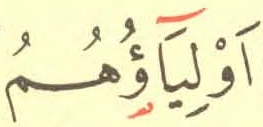 اَوْلِيَآؤُهُمُ